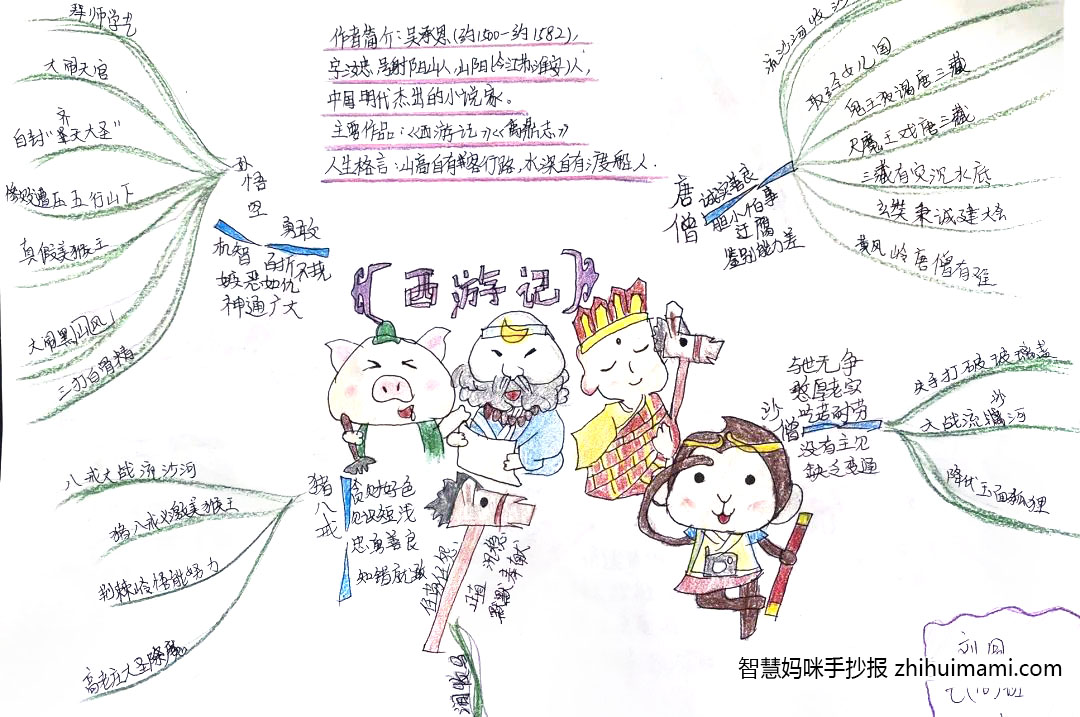 作者简介：吴承恩(约1500-约1582)，
字汝忠，号射阳山人，山阳(今江苏淮安)人，
中国明代杰出的小说家。
主要作品：《西游记》《禹鼎志》
人生格言：山高自有客行路，水深自有渡船人.
西游记
孙悟空
勇敢
机智 百折不挠
嫉恶如仇
神通广大
拜师学艺
大闹天宫
自封“齐天大圣”
压五行山下
真假美猴王
大闹黑风山
三打白骨精
唐僧
诚实善良
胆小怕事
迂腐
鉴别能力差
流沙河收沙
取经女儿国
鬼王夜谒唐三藏
魔王戏唐三藏
三藏有灾沉水底
玄奘秉诚建大会
黄风岭唐僧有难
沙僧
与世无争
憨厚老实
吃苦耐劳
没有主见
缺乏变通
失手打破玻璃盏
大战流沙河
降伏玉面狐狸
猪八戒
贪财好色
见识短浅
忠勇善良
知错就改
八戒大战流沙河
猪八戒义激美猴王
荆棘岭悟能努力
高老庄大圣降魔
任劳任怨，
正直 沉稳，
默默奉献
涧收马
智慧妈咪手抄报 zhihuimami.com